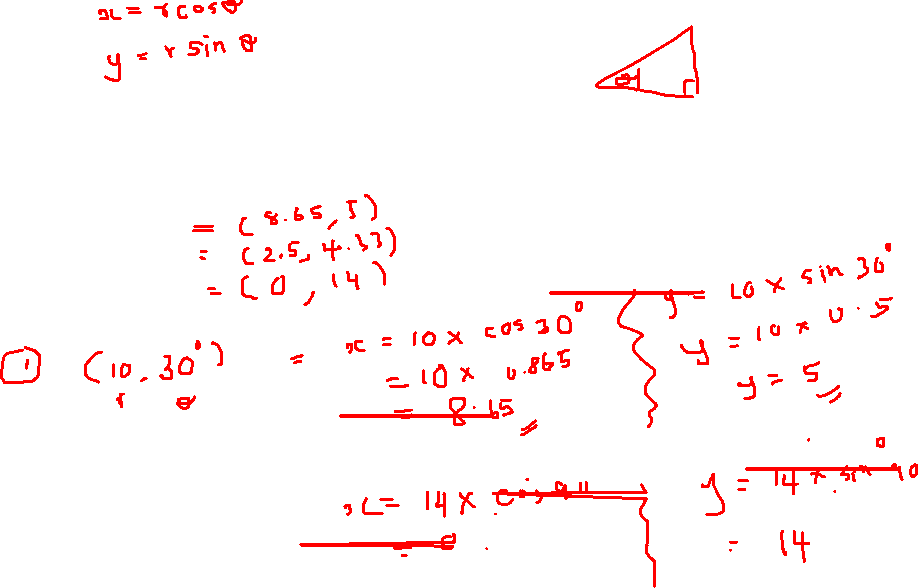 x = r cos θ
y = r sin θ
θ
= (8.65, 5)
= (2.5, 4.33)
= (0, 14)
① (10, 30°) = x = 10 × cos 30°
r θ
= 10 × 0.865
= 8.65
y = 10 × sin 30°
y = 10 × 0.5
y = 5
x = 14 ×
= 0
y = 14 × sin 90
= 14